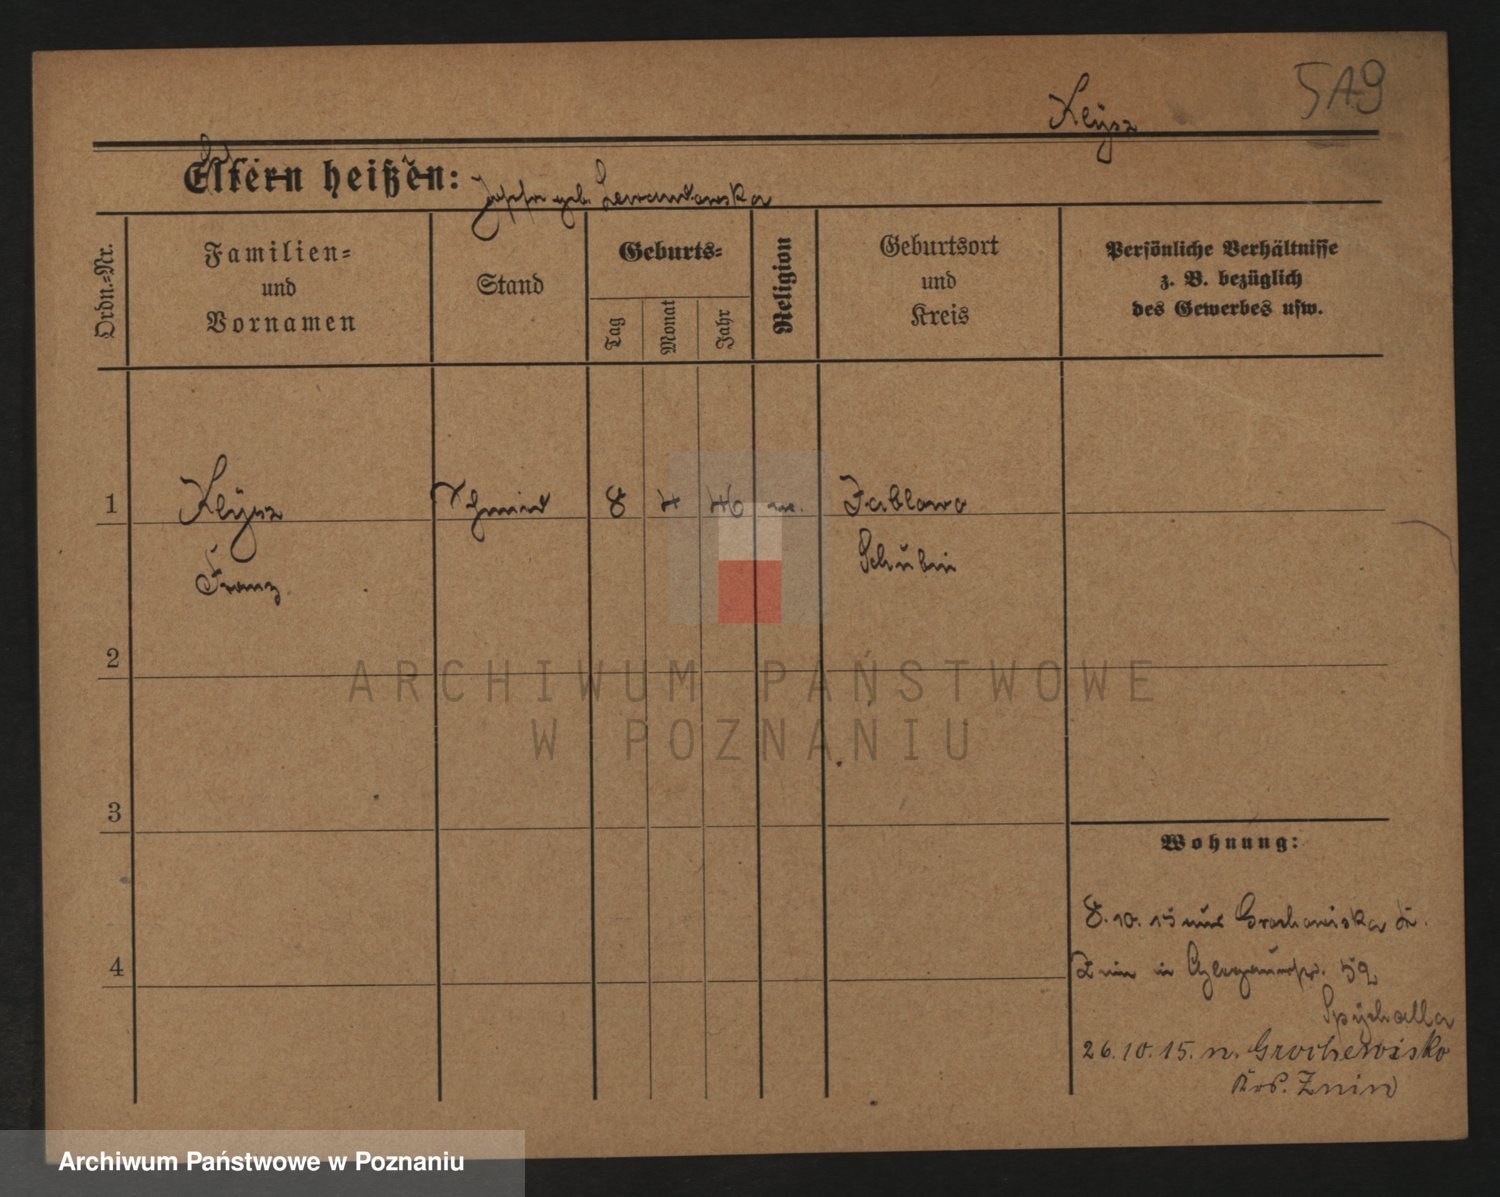 5A9
Kleÿsz
Eltern heißen:
Josefa geb. Lewandowska
Ordn.-Nr.
Familien-
und
Vornamen
Stand
Geburts-
Tag
Monat
Jahr
Religion
Geburtsort
und
Kreis
Persönliche Verhältnisse
z. B. bezüglich
des Gewerbes usw.
1
Kleÿsz
Schmied
8
4
46
Jablowo
Franz
Schubin
2
ARCHIWUM PAŃSTWOWE
W POZNANIU
3
Wohnung:
8.10.15 aus Grochowiska Kr.
4
Znin in 52
Spÿchalla
26.10.15. n. Grochowisko
Krs. Znin
Archiwum Państwowe w Poznaniu